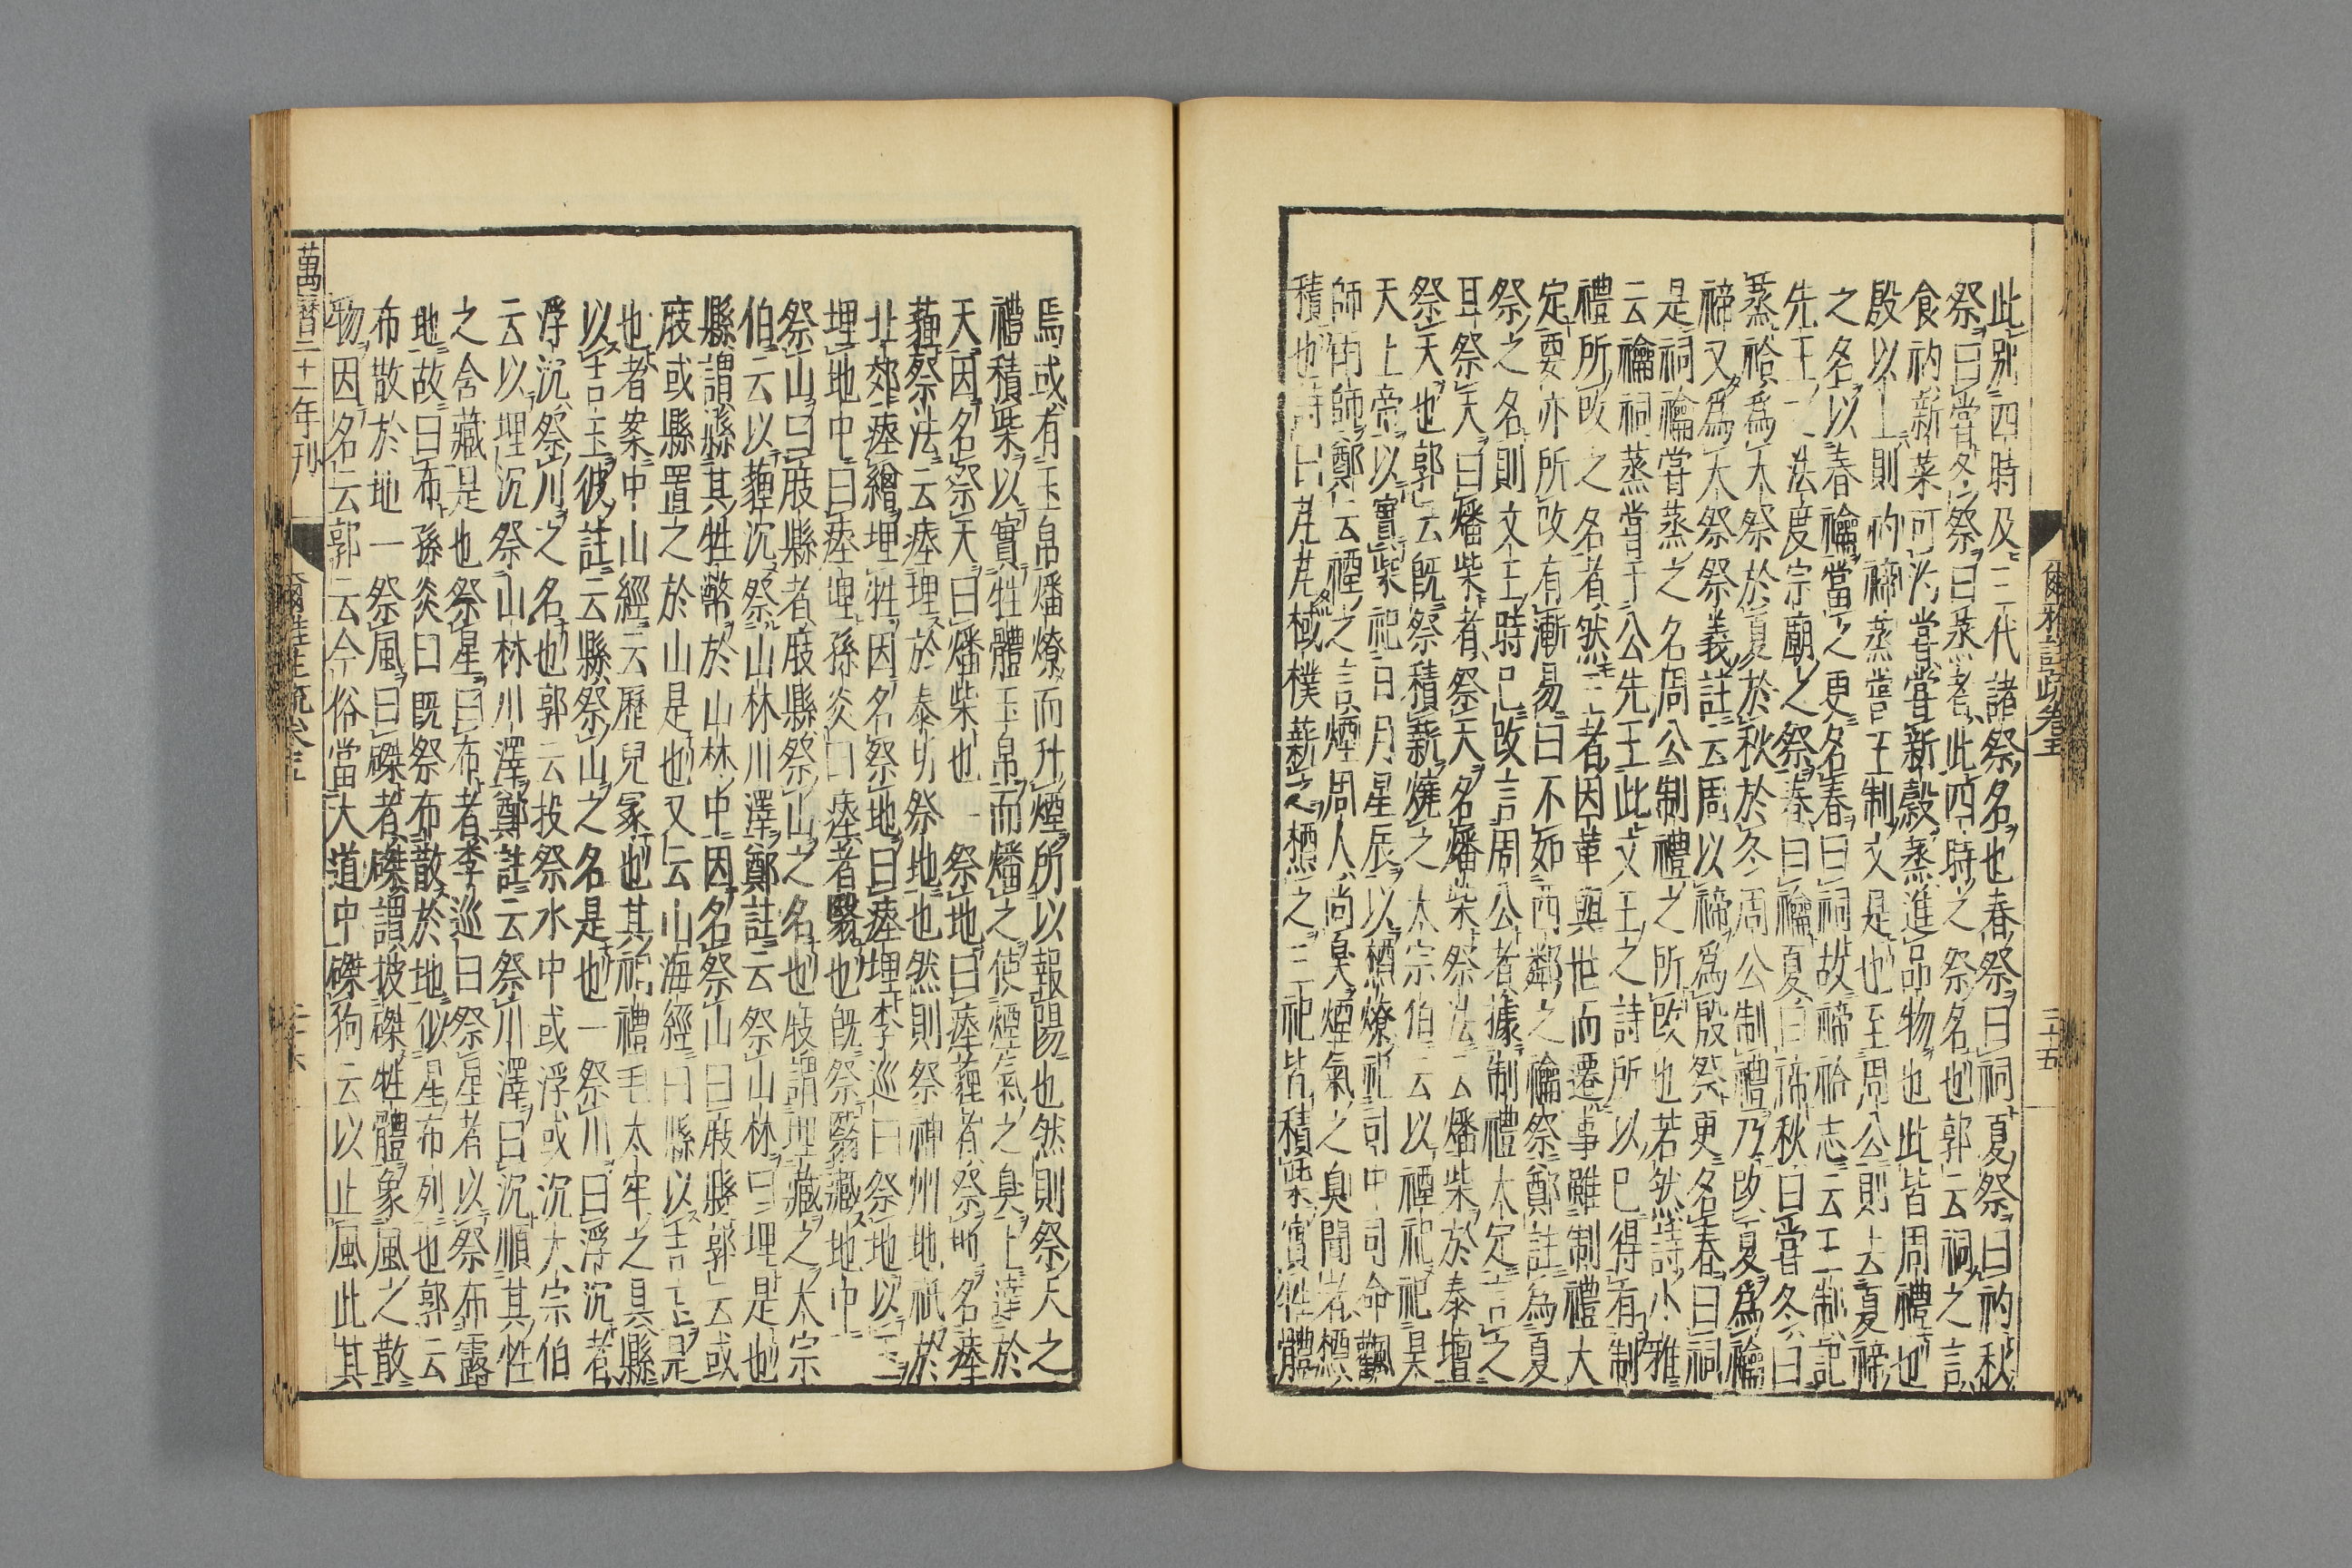 爾雅註疏卷五
三十五
此別四時及三代諸祭名也春祭曰祠夏祭曰礿秋
祭曰嘗冬祭曰蒸者此四時之祭名也郭云祠之言
食礿新菜可汋嘗嘗新穀蒸進品物也此皆周禮也
殷以上則礿禘蒸嘗王制文是也至周公則去夏禘
之名以春禴當之更名春曰祠故禘祫志云王制記
先王之法度宗廟之祭春曰禴夏曰禘秋曰嘗冬曰
蒸祫爲大祭於夏於秋於冬周公制禮乃改夏爲禴
禘又爲大祭祭義註云周以禘爲殷祭更名春曰祠
是祠禴嘗蒸之名周公制禮之所改也若然詩小雅
云禴祠蒸嘗于公先王此文王之詩所以已得有制
禮所改之名者然王者因革與世而遷事雖制禮大
定要亦所改有漸易曰不如西鄰之禴祭鄭註爲夏
祭之名則文王時已改言周公者據制禮大定言之
耳祭天曰燔柴者祭天名燔柴祭法云燔柴於泰壇
祭天也郭云旣祭積薪燒之大宗伯云以禋祀祀昊
天上帝以實柴祀日月星辰以槱燎祀司中司命觀
師雨師鄭云禋之言煙周人尚臭煙氣之臭聞者槱
積也詩曰芃芃棫樸薪之槱之三祀皆積柴實牲體
焉或有玉帛燔燎而升煙所以報陽也然則祭天之
禮積柴以實牲體玉帛而燔之使煙氣之臭上達於
天因名祭天曰燔柴也　祭地曰瘞薶者祭地名瘞
薶祭法云瘞埋於泰折祭地也然則祭神州地祇於
北郊瘞繒埋牲因名祭地曰瘞埋李巡曰祭地以玉
埋地中曰瘞埋孫炎曰瘞者翳也旣祭翳藏地中
祭山曰庪縣者庪縣祭山之名也庪謂埋藏之大宗
伯云以薶沉祭山林川澤鄭註云祭山林曰埋是也
縣謂縣其牲幣於山林中因名祭山曰庪縣郭云或
庪或縣置之於山是也又云山海經曰縣以吉玉是
也者案中山經云歷兒冢也其祠禮毛太牢之具縣
以吉玉彼註云縣祭山之名是也　祭川曰浮沉者
浮沉祭川之名也郭云投祭水中或浮或沉大宗伯
云以埋沉祭山林川澤鄭註云祭川澤曰沉順其性
之含藏是也祭星曰布者李巡曰祭星者以祭布露
地故曰布孫炎曰旣祭布散於地似星布列也郭云
布散於地　祭風曰磔者磔謂披磔牲體象風之散
物因名云郭云今俗當大道中磔狗云以止風此其
萬曆二十一年刊